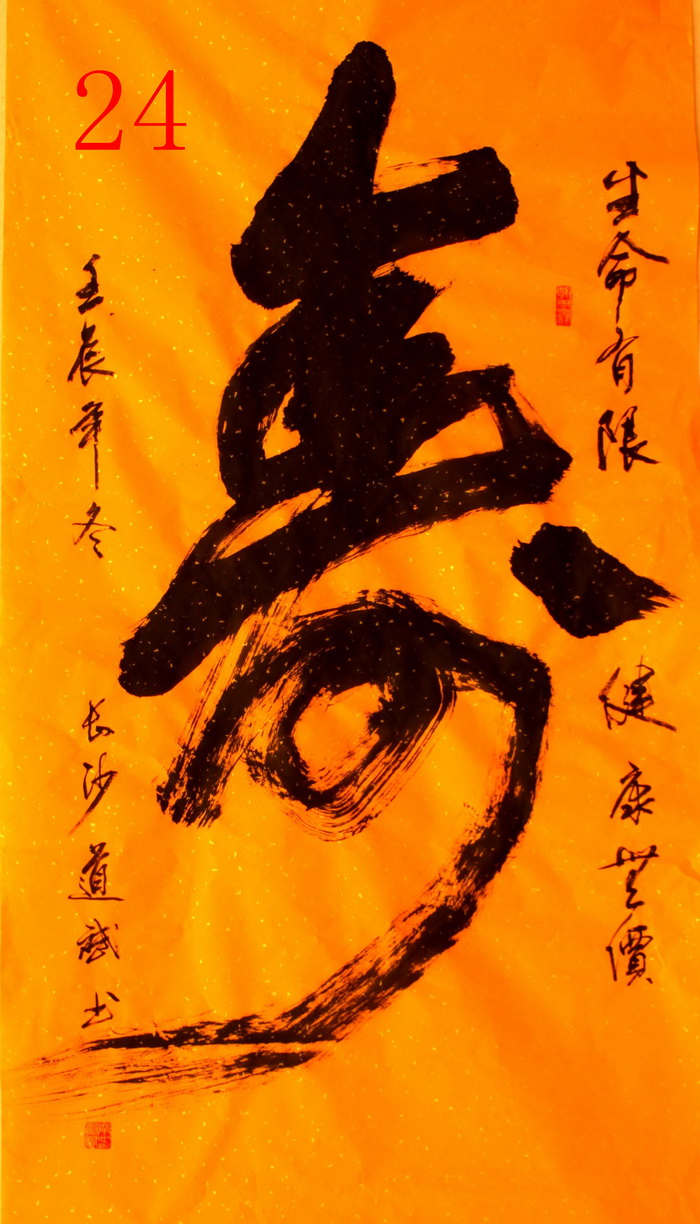 24
壽
生命有限
健康無價
壬辰年冬
长沙道斌书